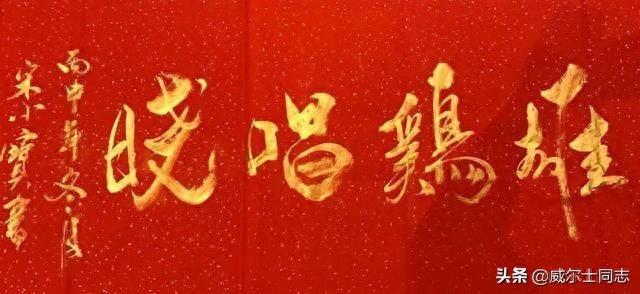 雄鷄唱曉
丙申年冬月
宋小寶書
头条 @威尔士同志